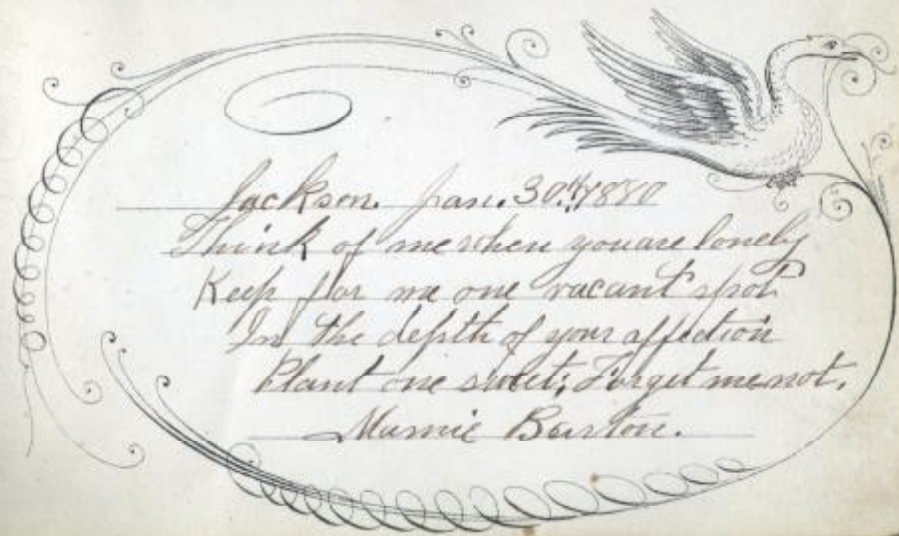 Jackson. Jan. 30th, 1880
Think of me when you are lonely
Keep for me one vacant spot
In the depth of your affection
Plant one sweet; Forget me not.
Mamie Barton.